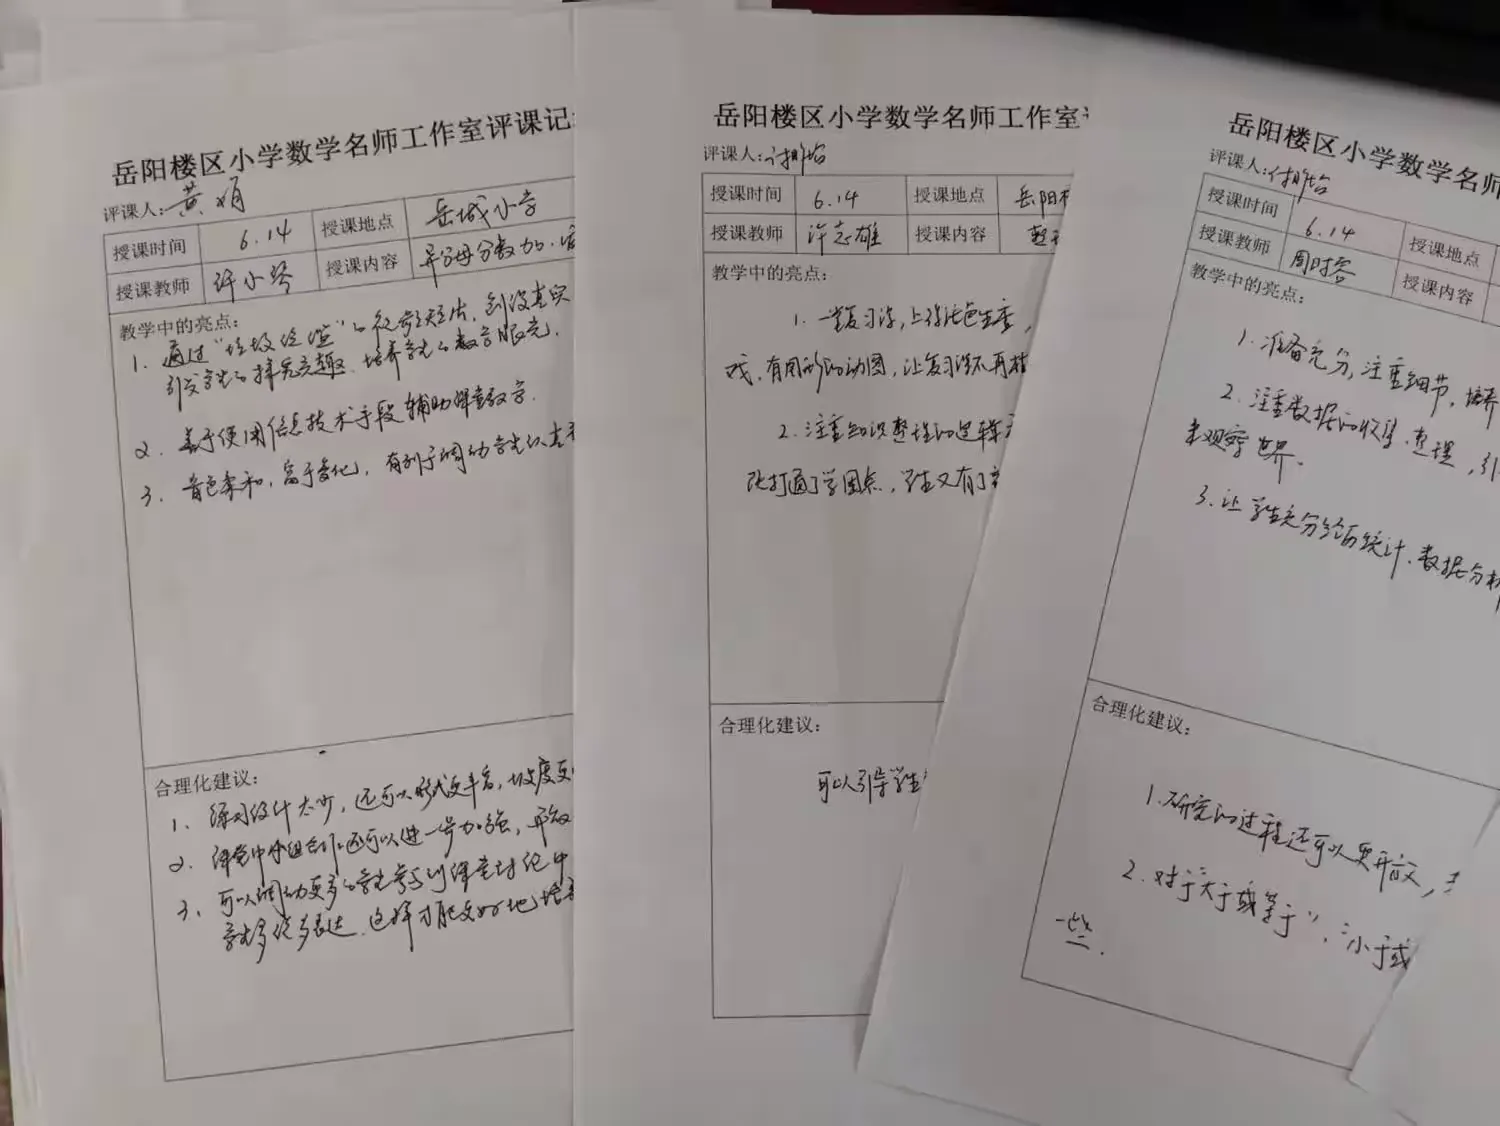 岳阳楼区小学数学名师工作室评课记
评课人:黄娟
授课时间 6.14 授课地点 岳城小学
授课教师 许小琴 授课内容 异分母分数加、
教学中的亮点:
1. 通过“垃圾 ”的 短片,创设真实
引发学生的探究兴趣、培养学生的数学眼光.
2. 善于使用信息技术手段辅助课堂教学.
3. 音色柔和,富于变化,有利于调动学生
合理化建议:
1、练习设计太少,还可以形式更丰富,坡度更
2、课堂中小组合作还可以进一步加强,
3、可以调动更多的学生参与到课堂讨论中
学生多 多表达,这样才能更好地培养
岳阳楼区小学数学名师工作室
评课人:
授课时间 6.14 授课地点 岳阳
授课教师 许志雄 授课内容 整
教学中的亮点:
1. 一堂复习课,上得
戏,有图形的动图,让复习课不再枯
2. 注重知识整理的逻辑
打通了学困点,学生又有了
合理化建议:
可以引导学生
岳阳楼区小学数学名师
评课人:
授课时间 6.14 授课地点
授课教师 周 授课内容
教学中的亮点:
1. 准备充分,注重细节,培养
2. 注重数据的收集、整理,引
来观察世界.
3. 让学生充分经历统计、数据分析
合理化建议:
1. 研究的过程还可以更开放,
2. 对于“大于或等于”、“小于或
一些.